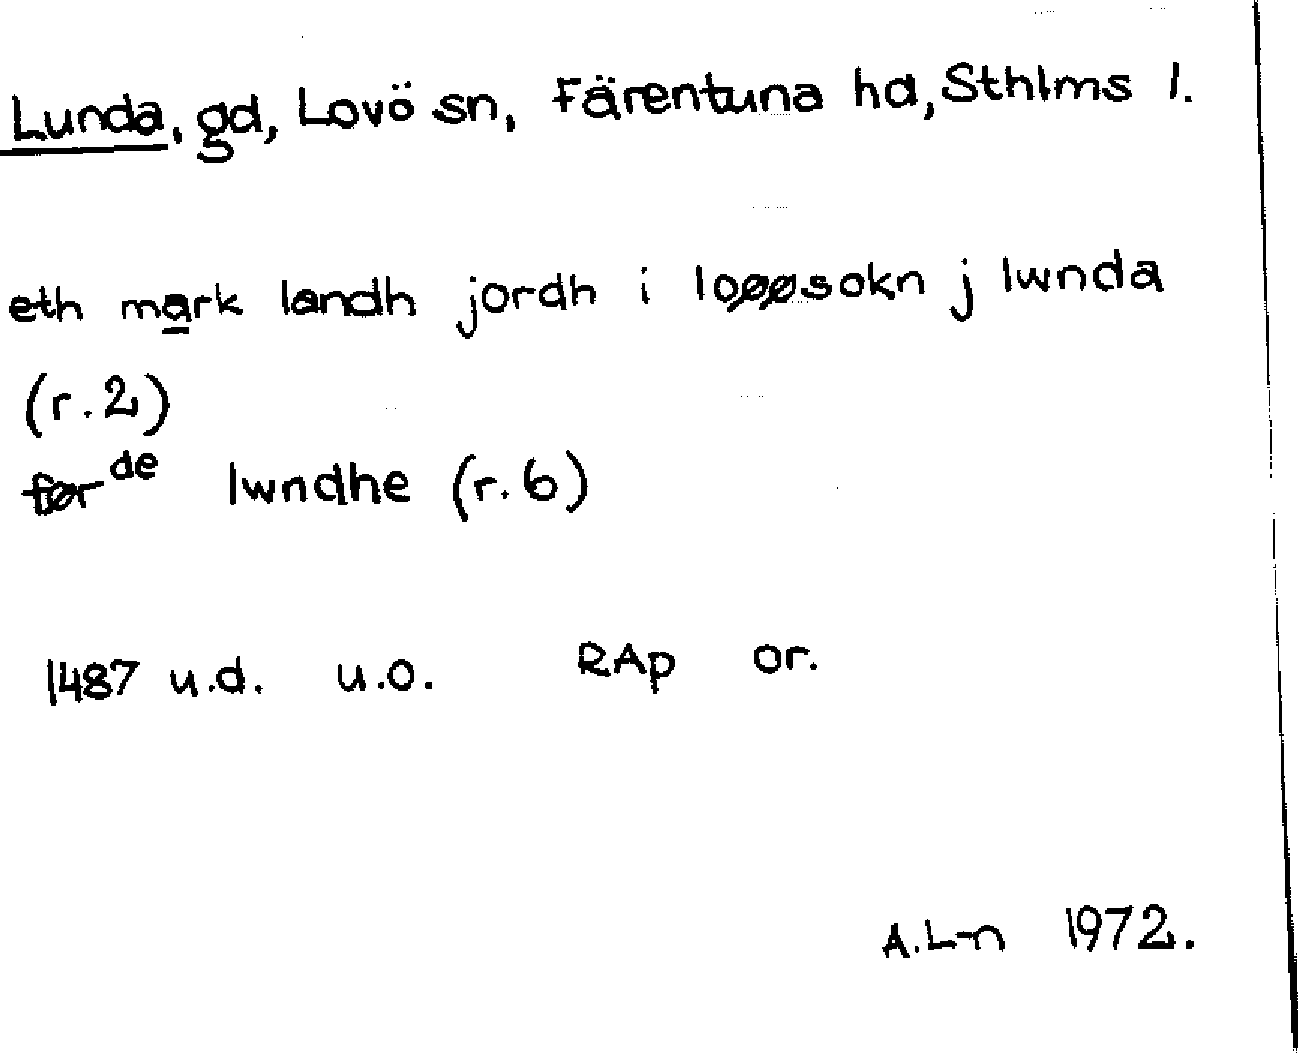 Lunda, gd, Lovö sn, Färentuna hd, Sthlms l.
eth mark landh jordh i loøøsokn j lwnda
(r.2)
før de lwndhe (r.6)
1487 u.d. u.o. RAp or.
A.L-n 1972.